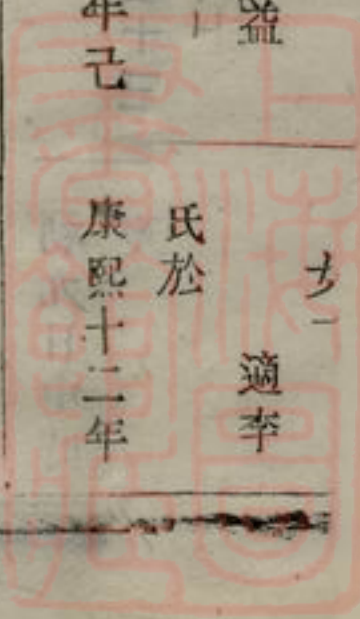 女一
益
適李
氏於
年己
康熙十二年